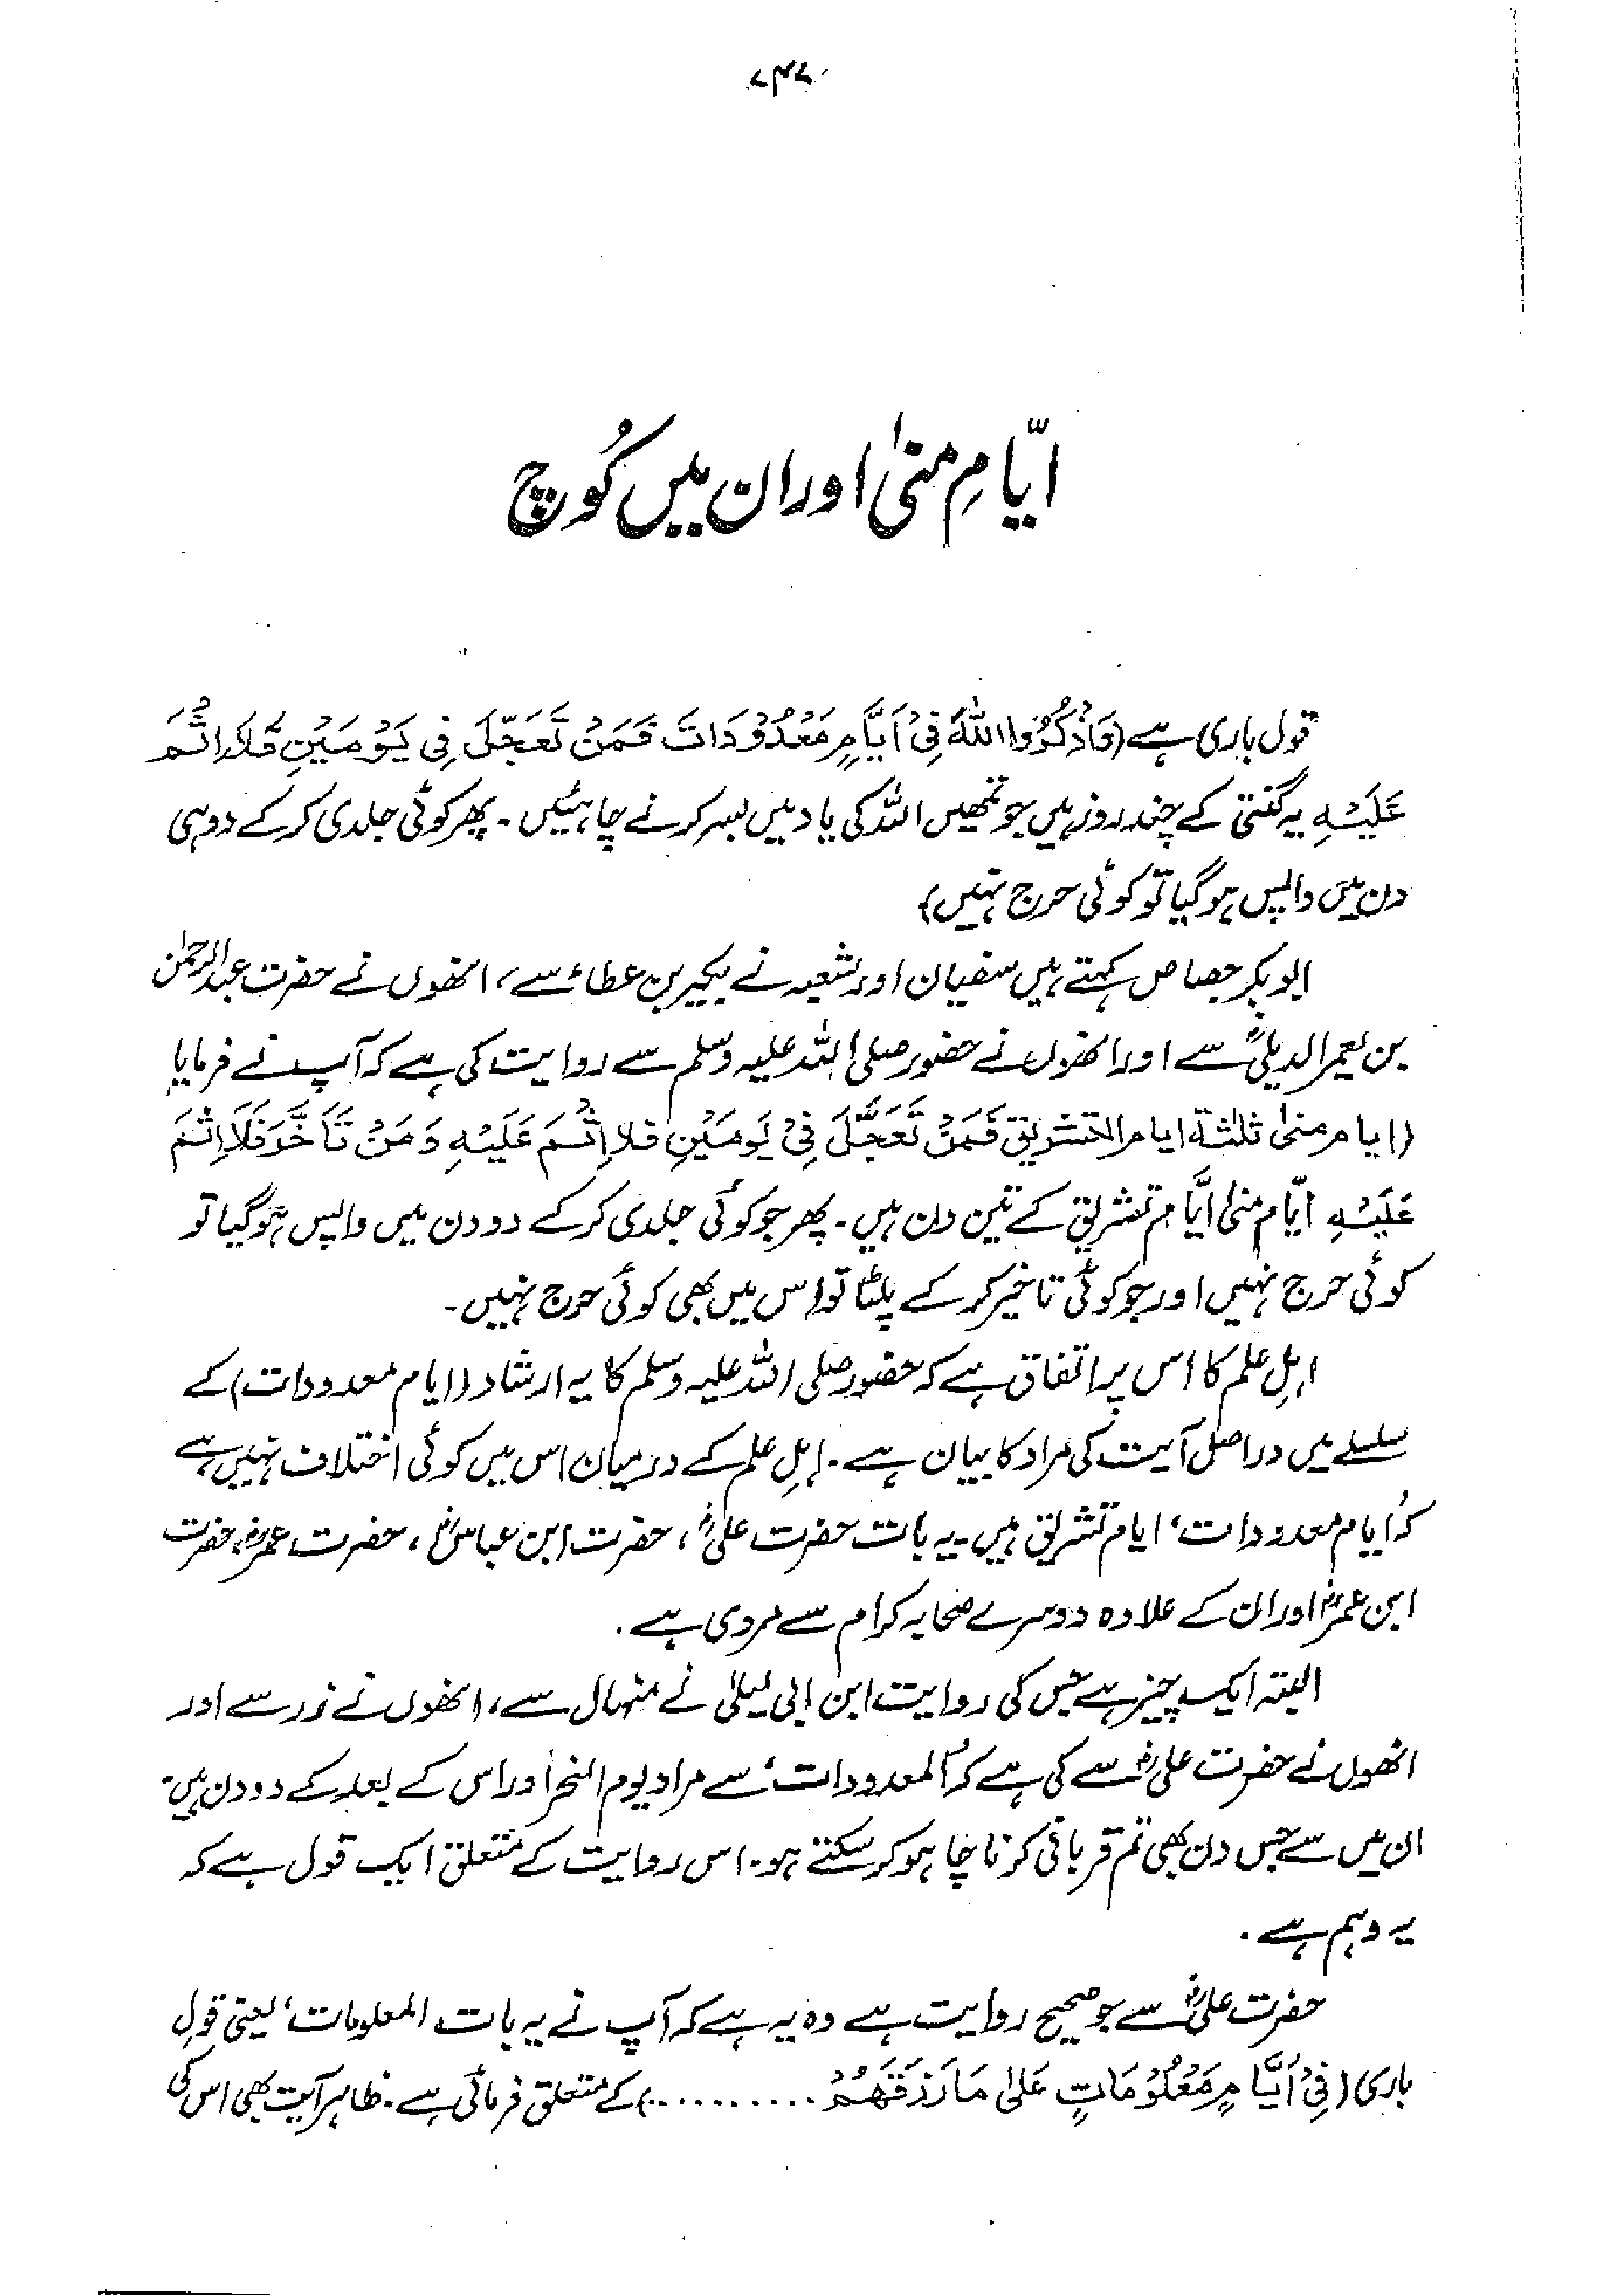 ۷۴۷
ایّامِ منیٰ اور ان میں کُوچ
قول باری ہے (فَاذْكُرُوا اللهَ فِیْ اَيَّامٍ مَعْدُوْدَاتَ فَمَنْ تَعَجَّلَ فِی يَوْمَيْنِ فَلَا اِثْمَ
عَلَيْهِ یہ گنتی کے چند روز ہیں جو تمھیں اللہ کی یاد میں بسر کرنے چاہئیں۔ پھر کوئی جلدی کرکے دو ہی
دن میں واپس ہو گیا تو کوئی حرج نہیں)
ابوبکر جصاص کہتے ہیں سفیان اور شعبہ نے بکیر بن عطاء سے، انھوں نے حضرت عبدالرحمٰن
بن یعمر الدیلیؓ سے اور انھوں نے حضور صلی اللہ علیہ وسلم سے روایت کی ہے کہ آپ نے فرمایا
(ایام منیٰ ثلثة ایام التشریق فَمَنْ تَعَجَّلَ فِیْ يَوْمَيْنِ فلا اِثْمَ عَلَيْهِ وَمَنْ تَاَخَّرَ فَلَا اِثْمَ
عَلَيْهِ ایّام منیٰ ایَّام تشریق کے تین دن ہیں۔ پھر جو کوئی جلدی کرکے دو دن میں واپس ہو گیا تو
کوئی حرج نہیں اور جو کوئی تاخیر کر کے پلٹا تو اس میں بھی کوئی حرج نہیں۔
اہلِ علم کا اس پر اتفاق ہے کہ حضور صلی اللہ علیہ وسلم کا یہ ارشاد (ایام معدودات) کے
سلسلے میں دراصل آیت کی مراد کا بیان ہے۔ اہلِ علم کے درمیان اس میں کوئی اختلاف نہیں ہے
کہ 'ایام معدودات' ایام تشریق ہیں۔ یہ بات حضرت علیؓ، حضرت ابن عباسؓ، حضرت عمرؓ، حضرت
ابن عمرؓ اور ان کے علاوہ دوسرے صحابہ کرام سے مروی ہے۔
البتہ ایک چیز ہے جس کی روایت ابن ابی لیلیٰ نے منہال سے، انھوں نے زر سے اور
انھوں نے حضرت علیؓ سے کی ہے کہ 'المعدودات' سے مراد یوم النحر اور اس کے بعد کے دو دن ہیں۔
ان میں سے جس دن بھی تم قربانی کرنا چاہو کر سکتے ہو۔ اس روایت کے متعلق ایک قول ہے کہ
یہ وہم ہے۔
حضرت علیؓ سے جو صحیح روایت ہے وہ یہ ہے کہ آپ نے یہ بات 'المعلومات' یعنی قولِ
باری (فِیْ اَيَّامٍ مَعْلُوْمَاتٍ عَلىٰ مَا رَزَقَهُمْ ..........) کے متعلق فرمائی ہے۔ ظاہر آیت بھی اس کی